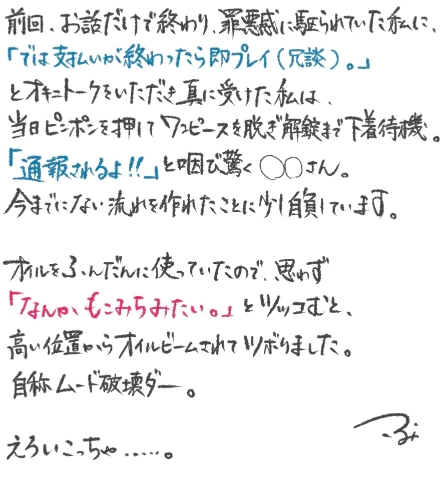 前回、お話だけで終わり、罪悪感に駆られていた私に、
「では支払いが終わったら即プレイ(冗談)。」
とオキニトークをいただき真に受けた私は、
当日ピンポンを押してワンピースを脱ぎ解錠まで下着待機。
「通報されるよ!!」と咽び驚く〇〇さん。
今までにない流れを作れたことに少し自負しています。
オイルをふんだんに使っていたので、思わず
「なんか、もこみちみたい。」とツッコむと、
高い位置からオイルビームされてツボりました。
自称ムード破壊ダー。
えろいこっちゃ……。